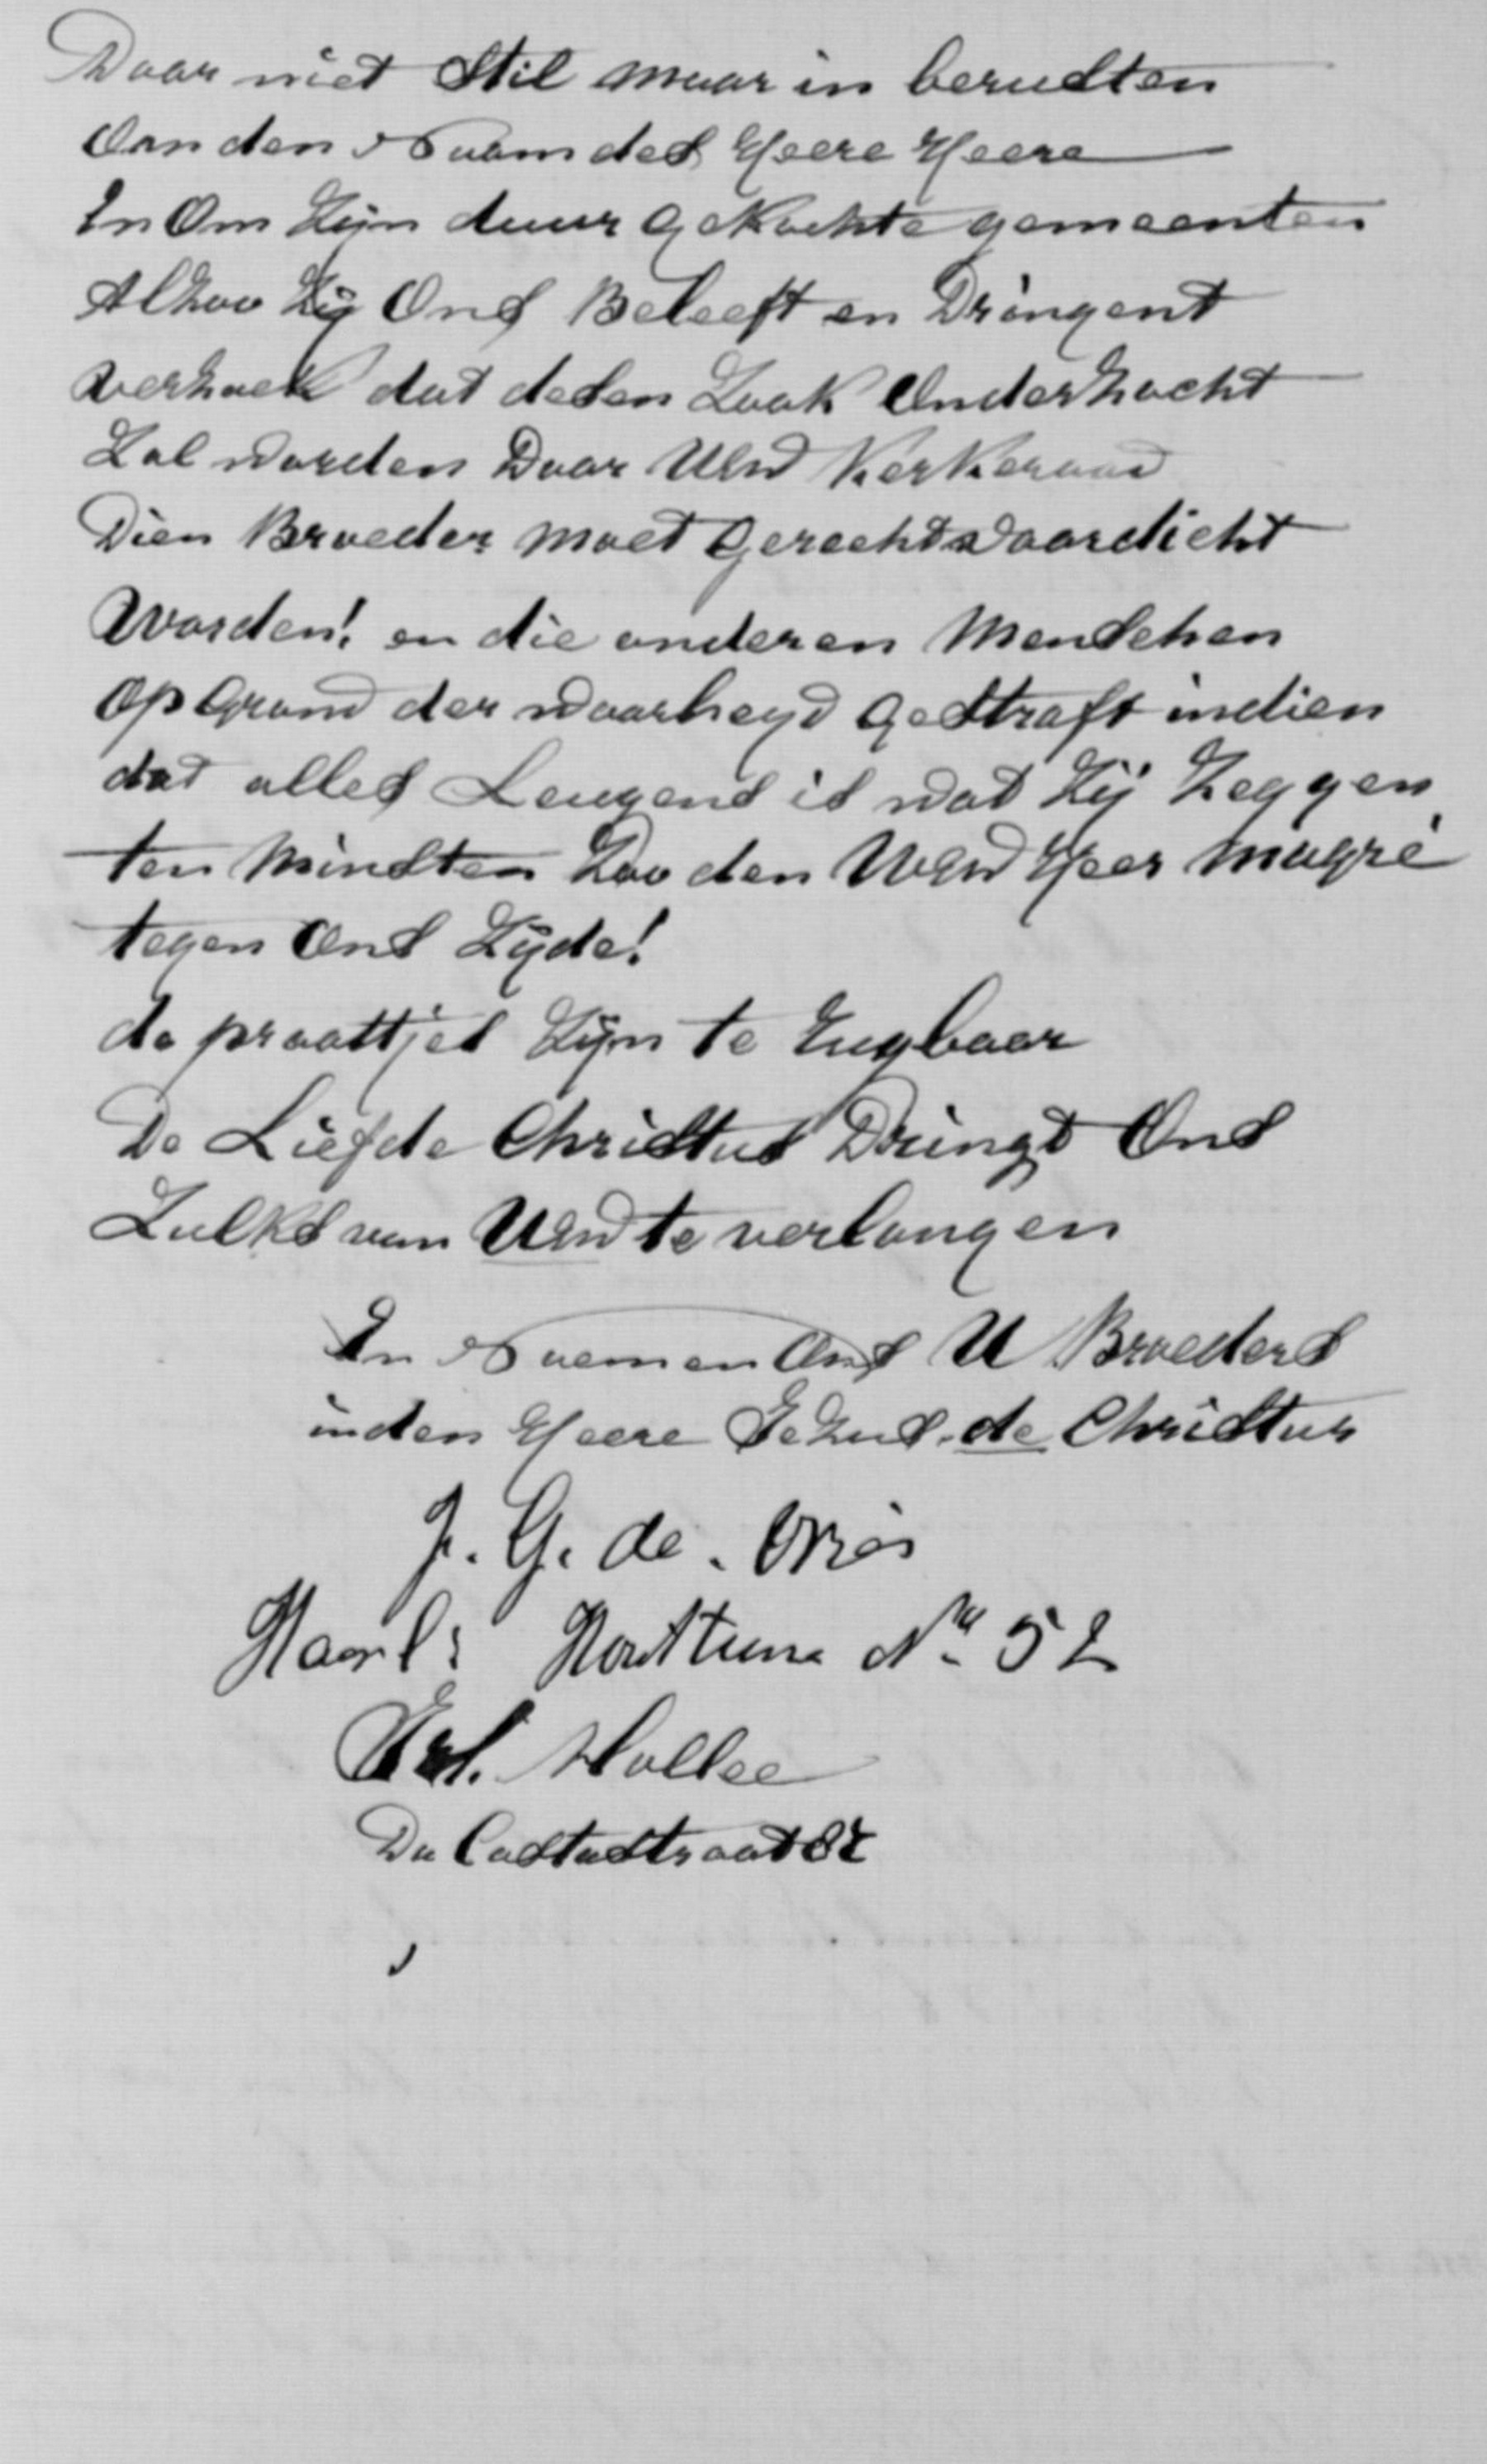 Daar niet Stil maar in berusten
Om den Naam des Heere Heere
En Om Zijn duur gekochte gemeenten
Alzoo Zij Ons Beleeft en Dringent
verzoek dat desen Zaak Onderzocht
Zal worden Door UEw Kerkeraad
Dien Broeder moet Gerechtvaardicht
Worden! en die anderen Menschen
Op Grond der waarheyd Gestraft indien
dat alles Leugens is wat Zij Zeggen
ten Minsten Zoo den WEw Heer
tegen Ons Zijde!
de praattjes Zijn te
De Liefde Christus Dringt Ons
Zulks van UEw te verlangen
In Naemen Ons U Broeders
in den Heere Jezus de Christus
J. G. de Vries
Haarl: Houttuine No 52
Mollee
Da Costastraat